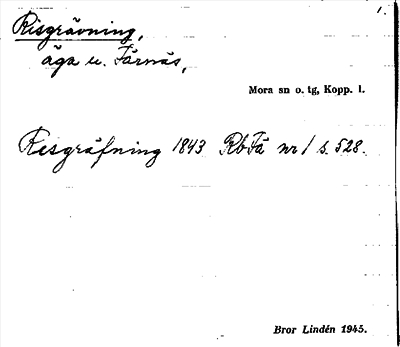 1.
Risgrävning,
äga u. Färnäs,
Mora sn o. tg, Kopp. l.
Resgräfning 1843 RbFä nr 1 s. 528.
Bror Lindén 1945.